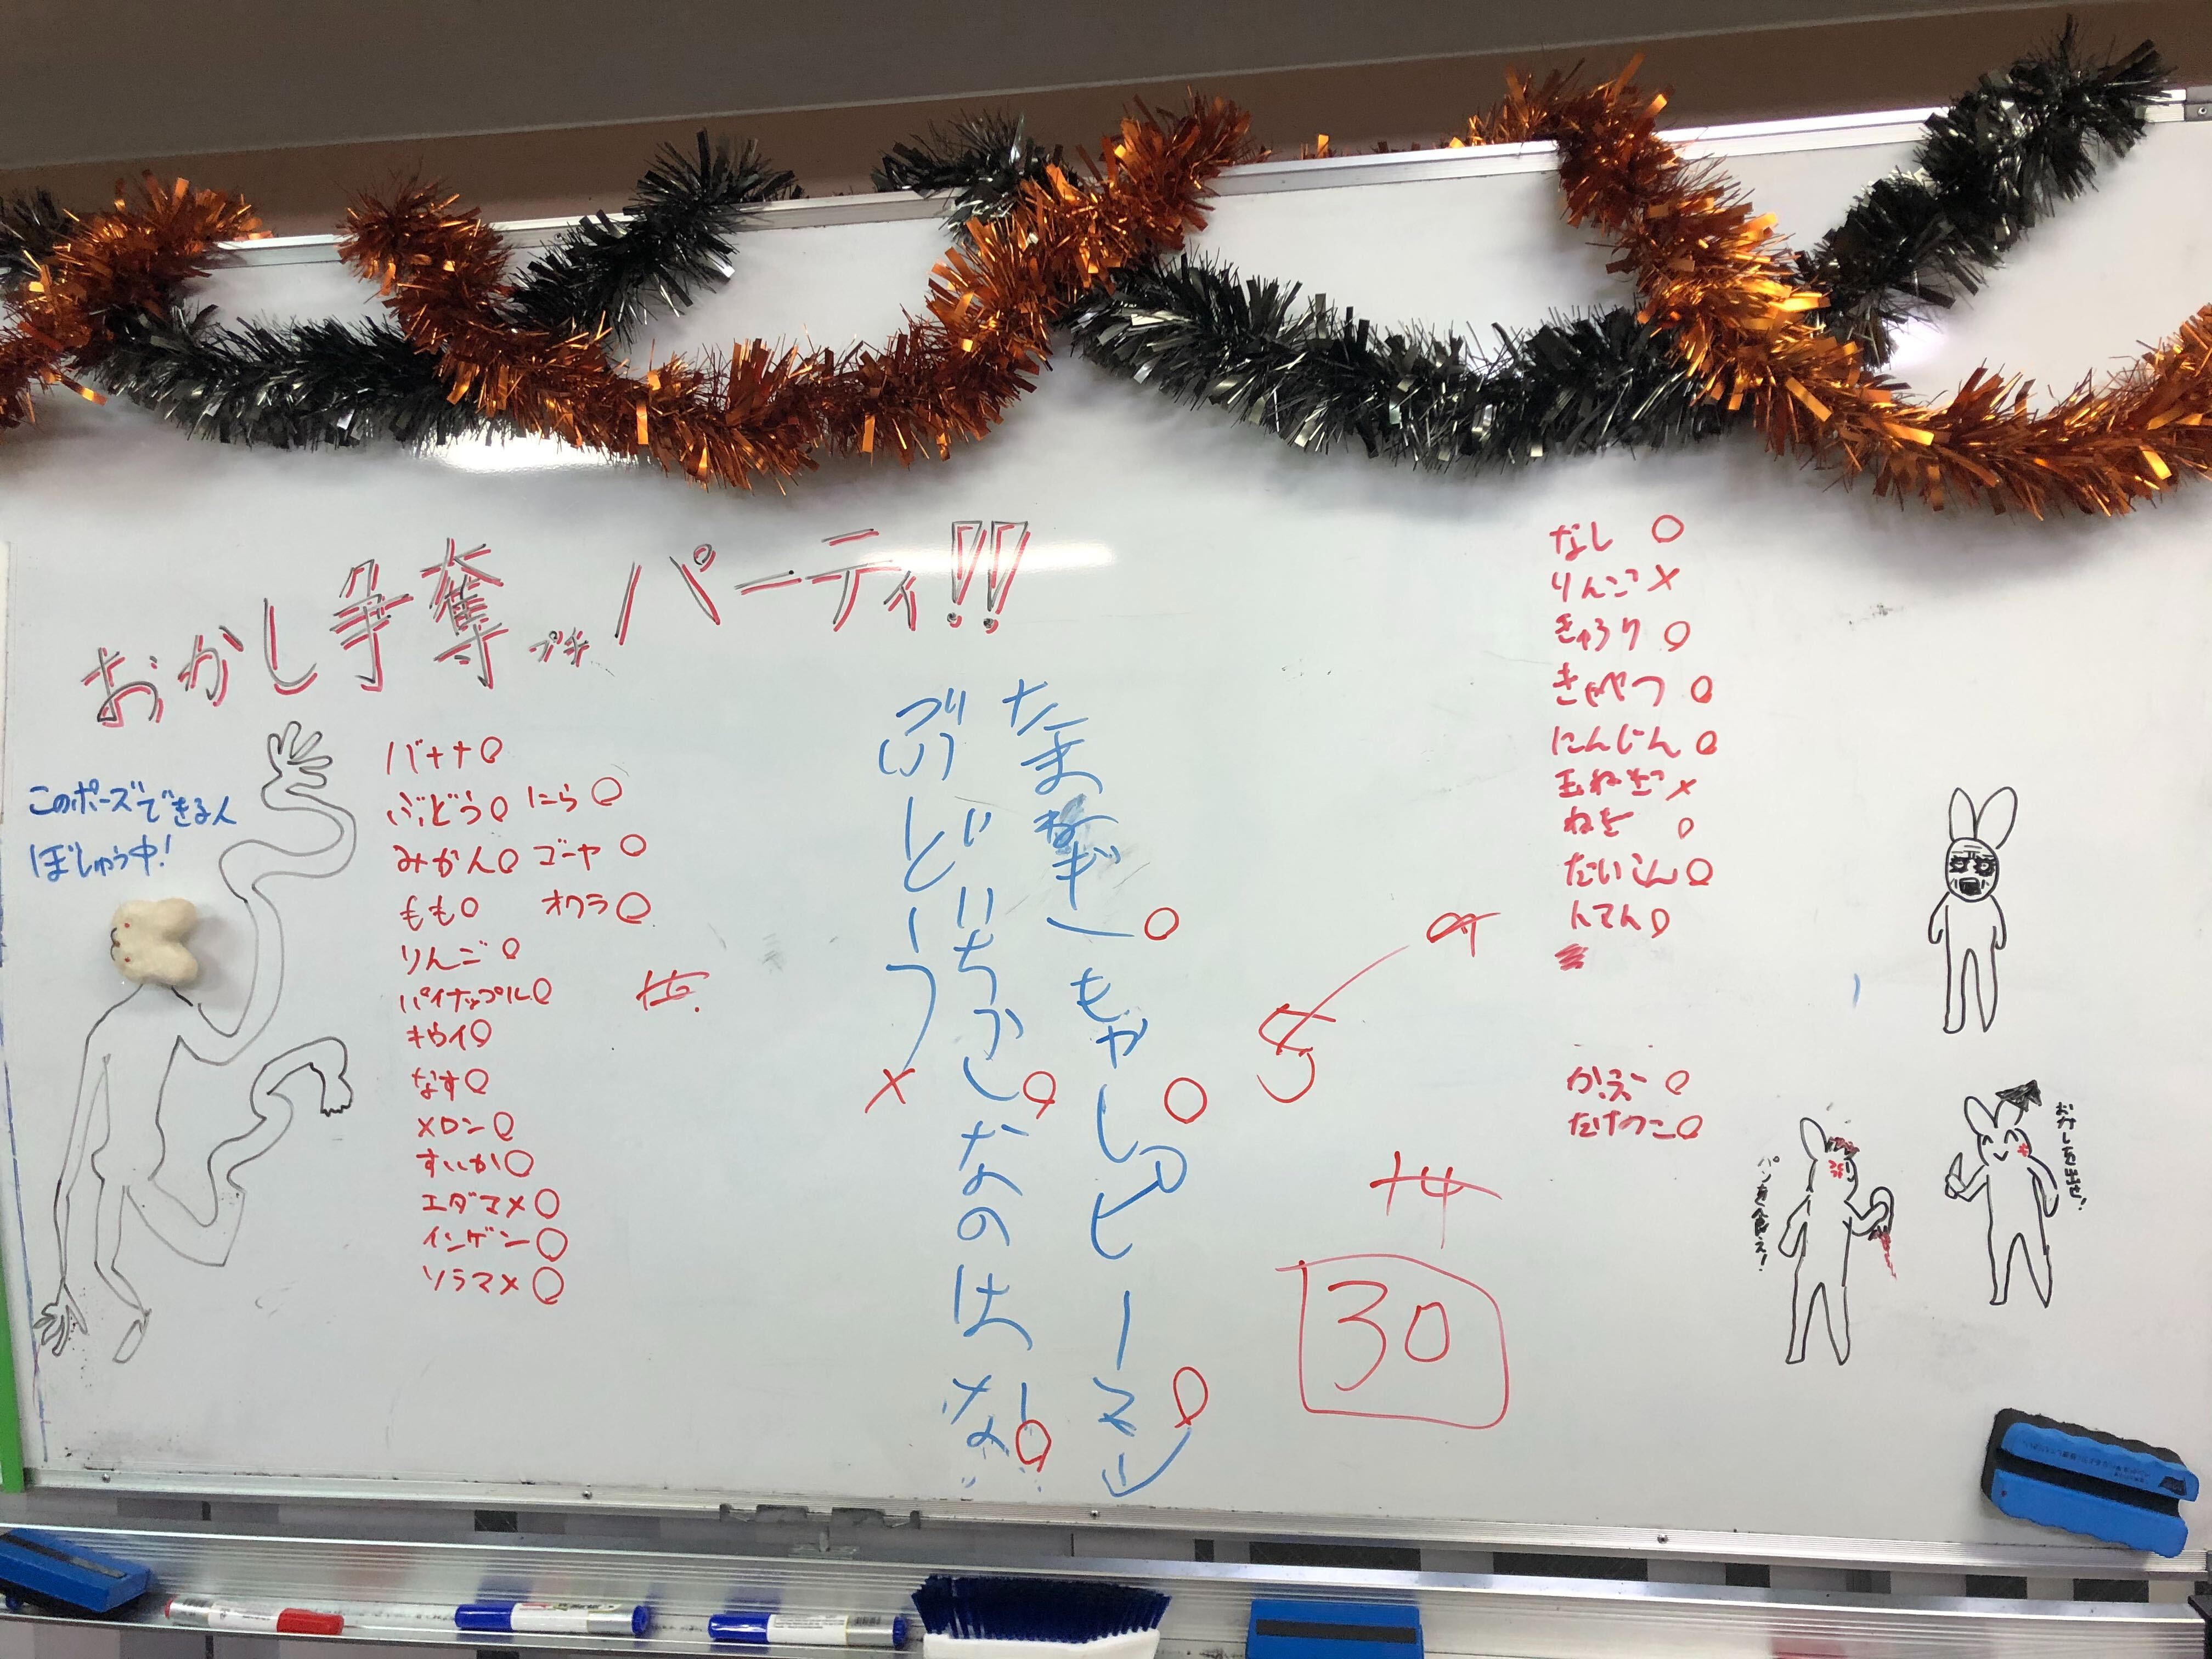 おかし争奪プチパーティ!!
このポーズできる人
ぼしゅう中!
バナナ○
ぶどう○ にら○
みかん○ ゴーヤ○
もも○ オクラ○
りんご○
パイナップル○
キウイ○
なす○
メロン○
すいか○
エダマメ○
インゲン○
ソラマメ○
たまねぎ○
もやし○
ピーマン○
いちご○
なのはな○
ぶどう×
14
30
なし○
りんご×
きゅうり○
きゃべつ○
にんじん○
玉ねぎ×
ねぎ○
だいこん○
かぶ○
たけのこ○
おかしを出せ!
パンを食え!